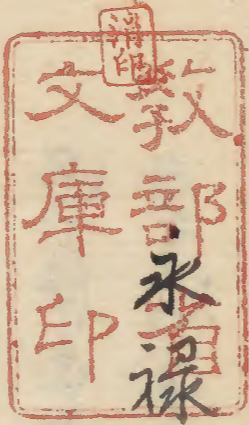 消印
教部省
文庫印
永禄